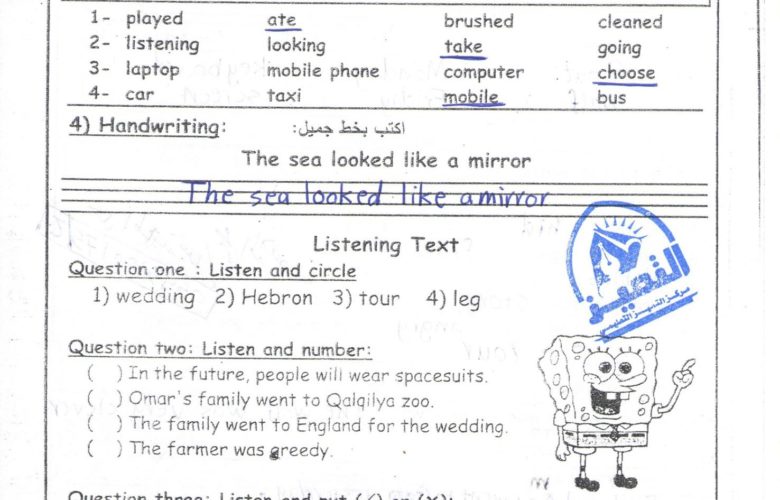 1- played ate brushed cleaned
2- listening looking take going
3- laptop mobile phone computer choose
4- car taxi mobile bus
4) Handwriting: اكتب بخط جميل:
The sea looked like a mirror
The sea looked like amirror
Listening Text
Question one : Listen and circle
1) wedding 2) Hebron 3) tour 4) leg
Question two: Listen and number:
( ) In the future, people will wear spacesuits.
( ) Omar's family went to Qalqilya zoo.
( ) The family went to England for the wedding.
( ) The farmer was greedy.
Question three: Listen and put (✓) or (X):